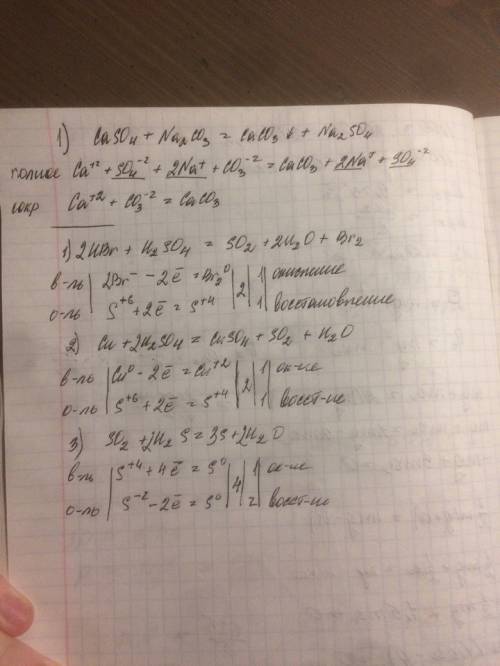 1) CaSO4 + Na2CO3 = CaCO3↓ + Na2SO4
полное Ca+2 + SO4-2 + 2Na+ + CO3-2 = CaCO3 + 2Na+ + SO4-2
сокр Ca+2 + CO3-2 = CaCO3
1) 2HBr + H2SO4 = SO2 + 2H2O + Br2
в-ль | 2Br- - 2ē = Br2 0 | 2 | 1 | окисление
о-ль | S+6 + 2ē = S+4 | 1 | восстановление
2) Cu + 2H2SO4 = CuSO4 + SO2 + H2O
в-ль | Cu0 - 2ē = Cu+2 | 2 | 1 | ок-ие
о-ль | S+6 + 2ē = S+4 | 1 | восст-ие
3) SO2 + 2H2S = 3S + 2H2O
в-ль | S+4 + 4ē = S0 | 4 | 1 | ок-ие
о-ль | S-2 - 2ē = S0 | 2 | восст-ие